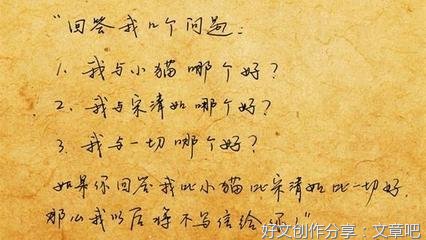 “回答我几个问题：
1. 我与小猫哪个好？
2. 我与宋清如哪个好？
3. 我与一切哪个好？
如果你回答我比小猫比宋清如比一切好，
那么我以后将不写信给你！”
好文创作分享：文章吧